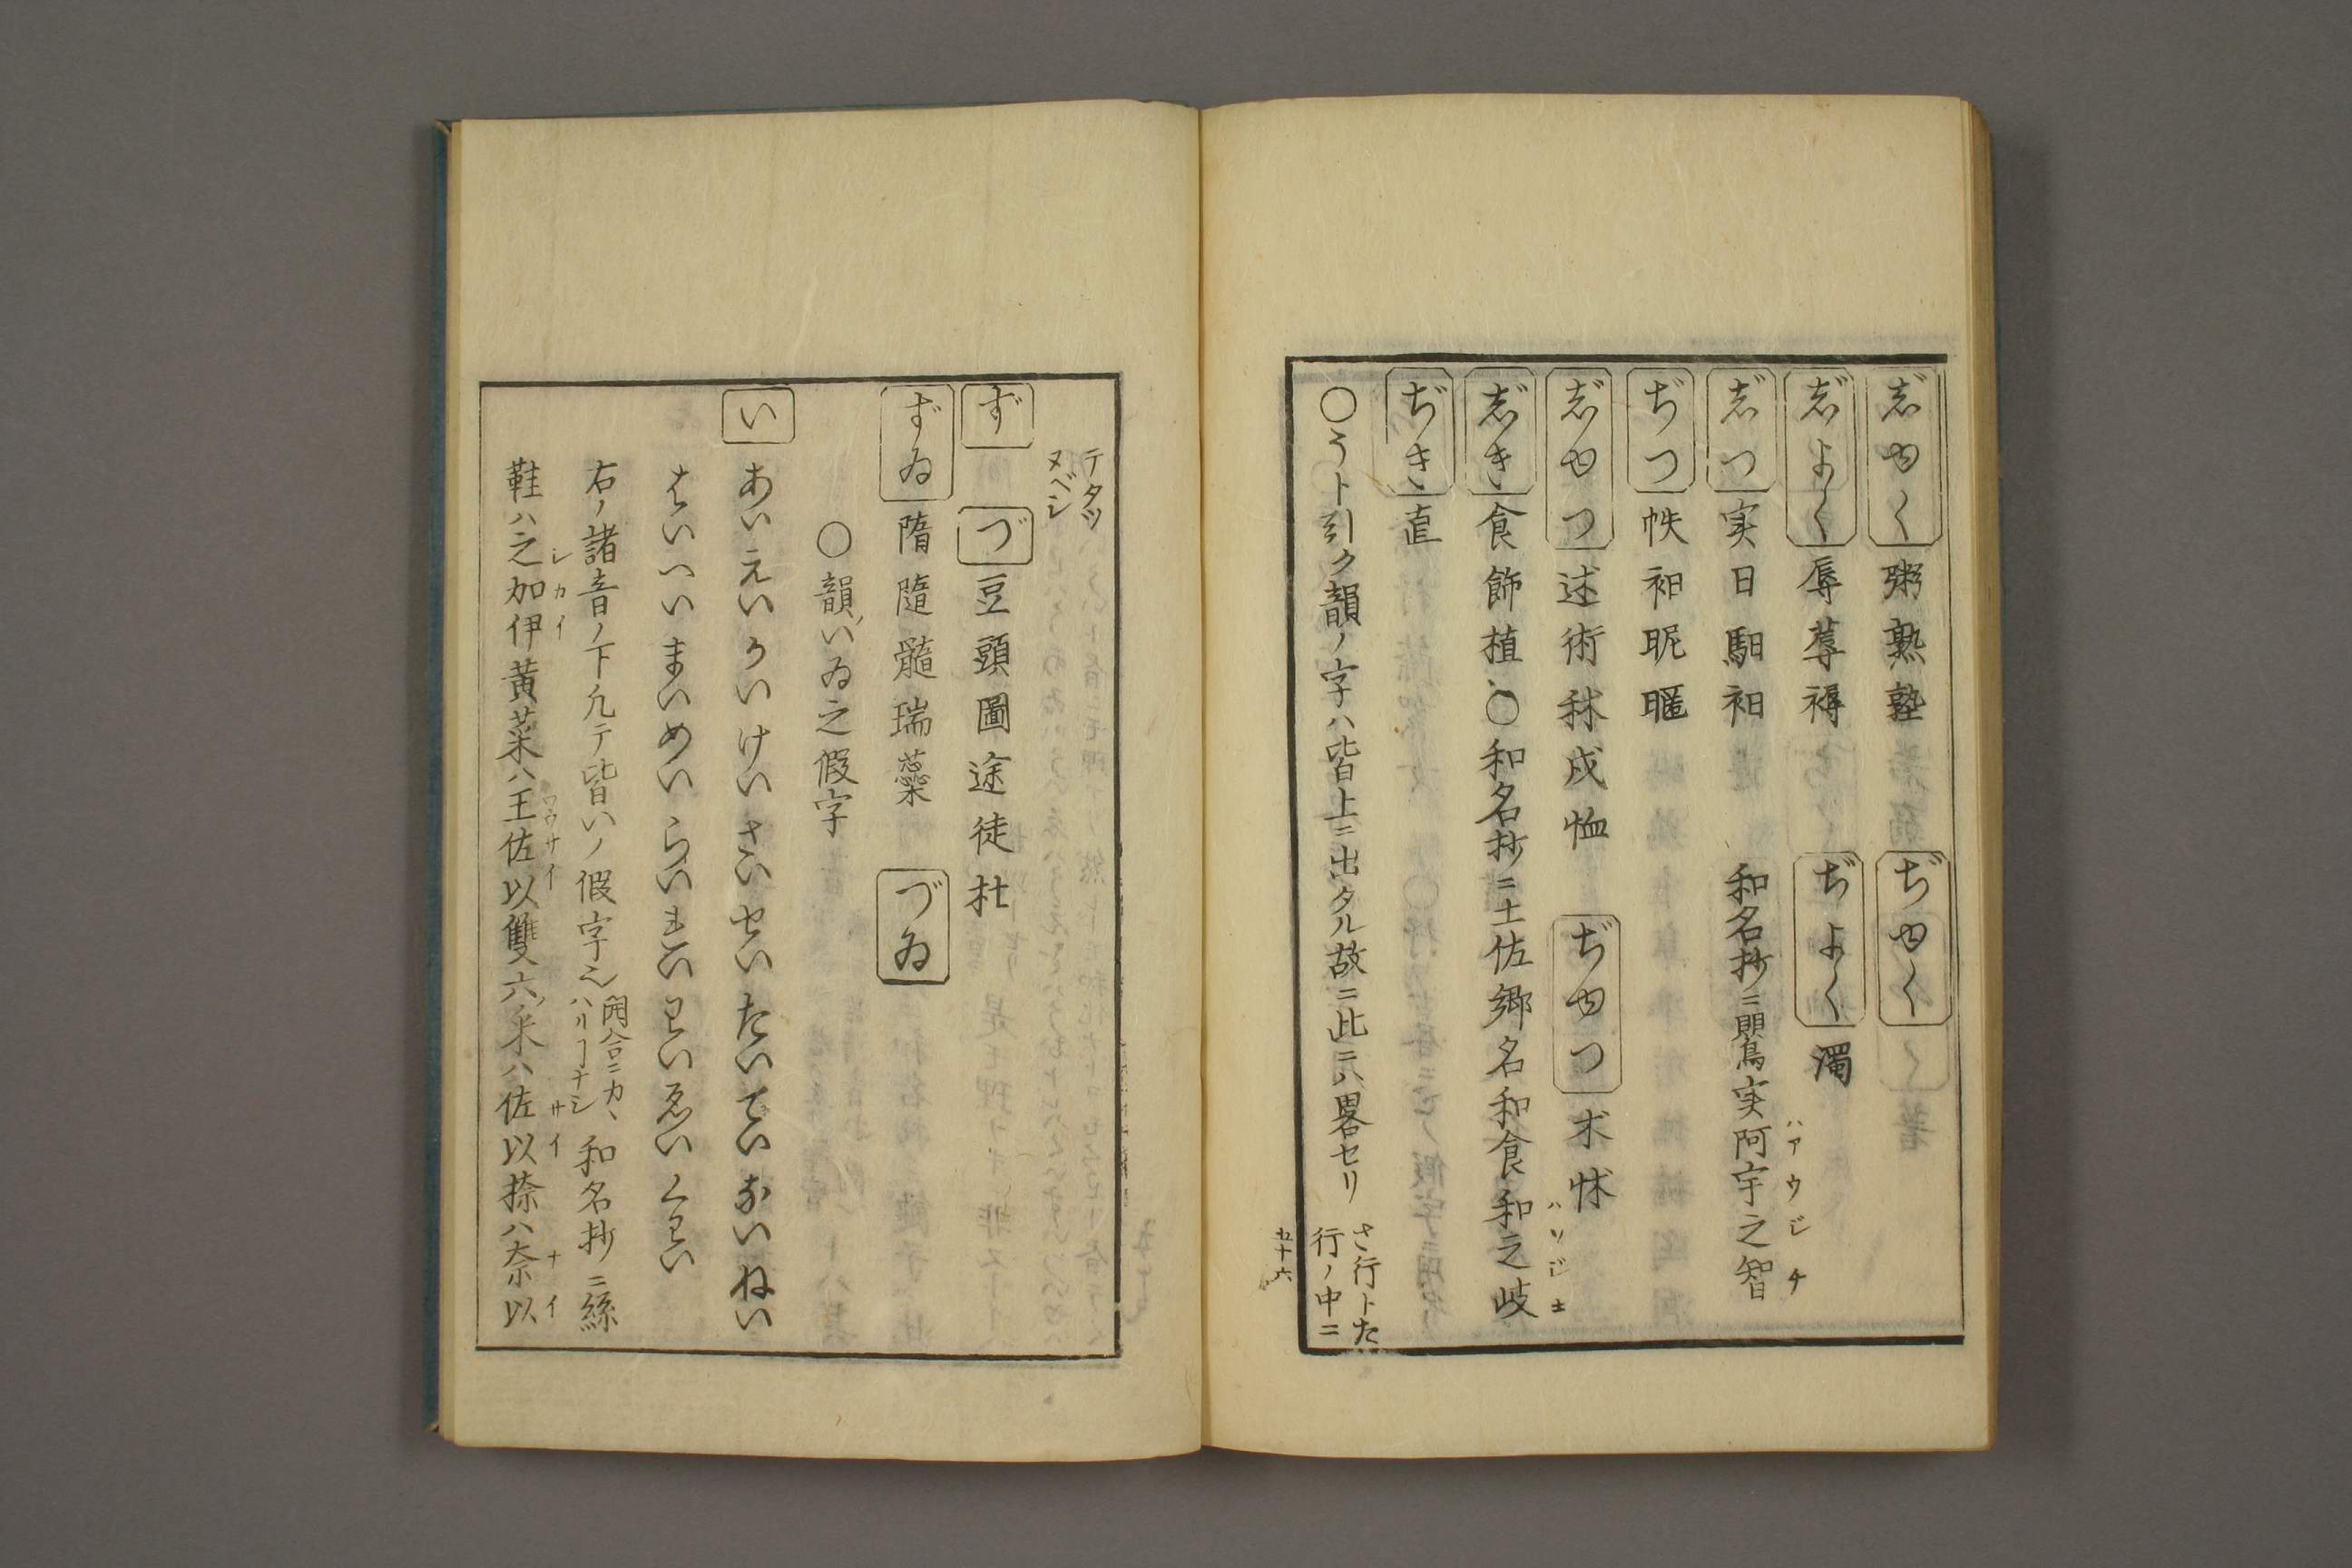 じゆく 粥熟塾 ぢゆく
じよく 辱蓐褥 ぢよく 濁
じつ 実日馹衵 和名抄ニ鷪実阿宇之智
ハアウジチ
ぢつ 帙衵昵暱
じゆつ 述術秫戌恤 ぢゆつ 朮怵
じき 食飾植○和名抄ニ土佐郷名和食和之岐
ぢき 直
○うト引ク韻ノ字ハ皆上ニ出タル故ニ此ニハ畧セリ さ行トた
行ノ中ニ
五十六
テタヅ
ヌベシ
ず づ 豆頭圖途徒杜
ずゐ 隋隨髓瑞蘂 づゐ
○韻ノいゐ之假字
い あい えい かい けい さい せい たい てい ない ねい
はい へい まい めい らい れい わい ゑい くわい
右ノ諸音ノ下凢テ皆いノ假字也 開合ニカヽ
ハリナシ
和名抄ニ絲
鞋ハ之加伊黄菜ハ王佐以雙六ノ采ハ佐以捺ハ奈以
シカイ ワウサイ サイ ナイ